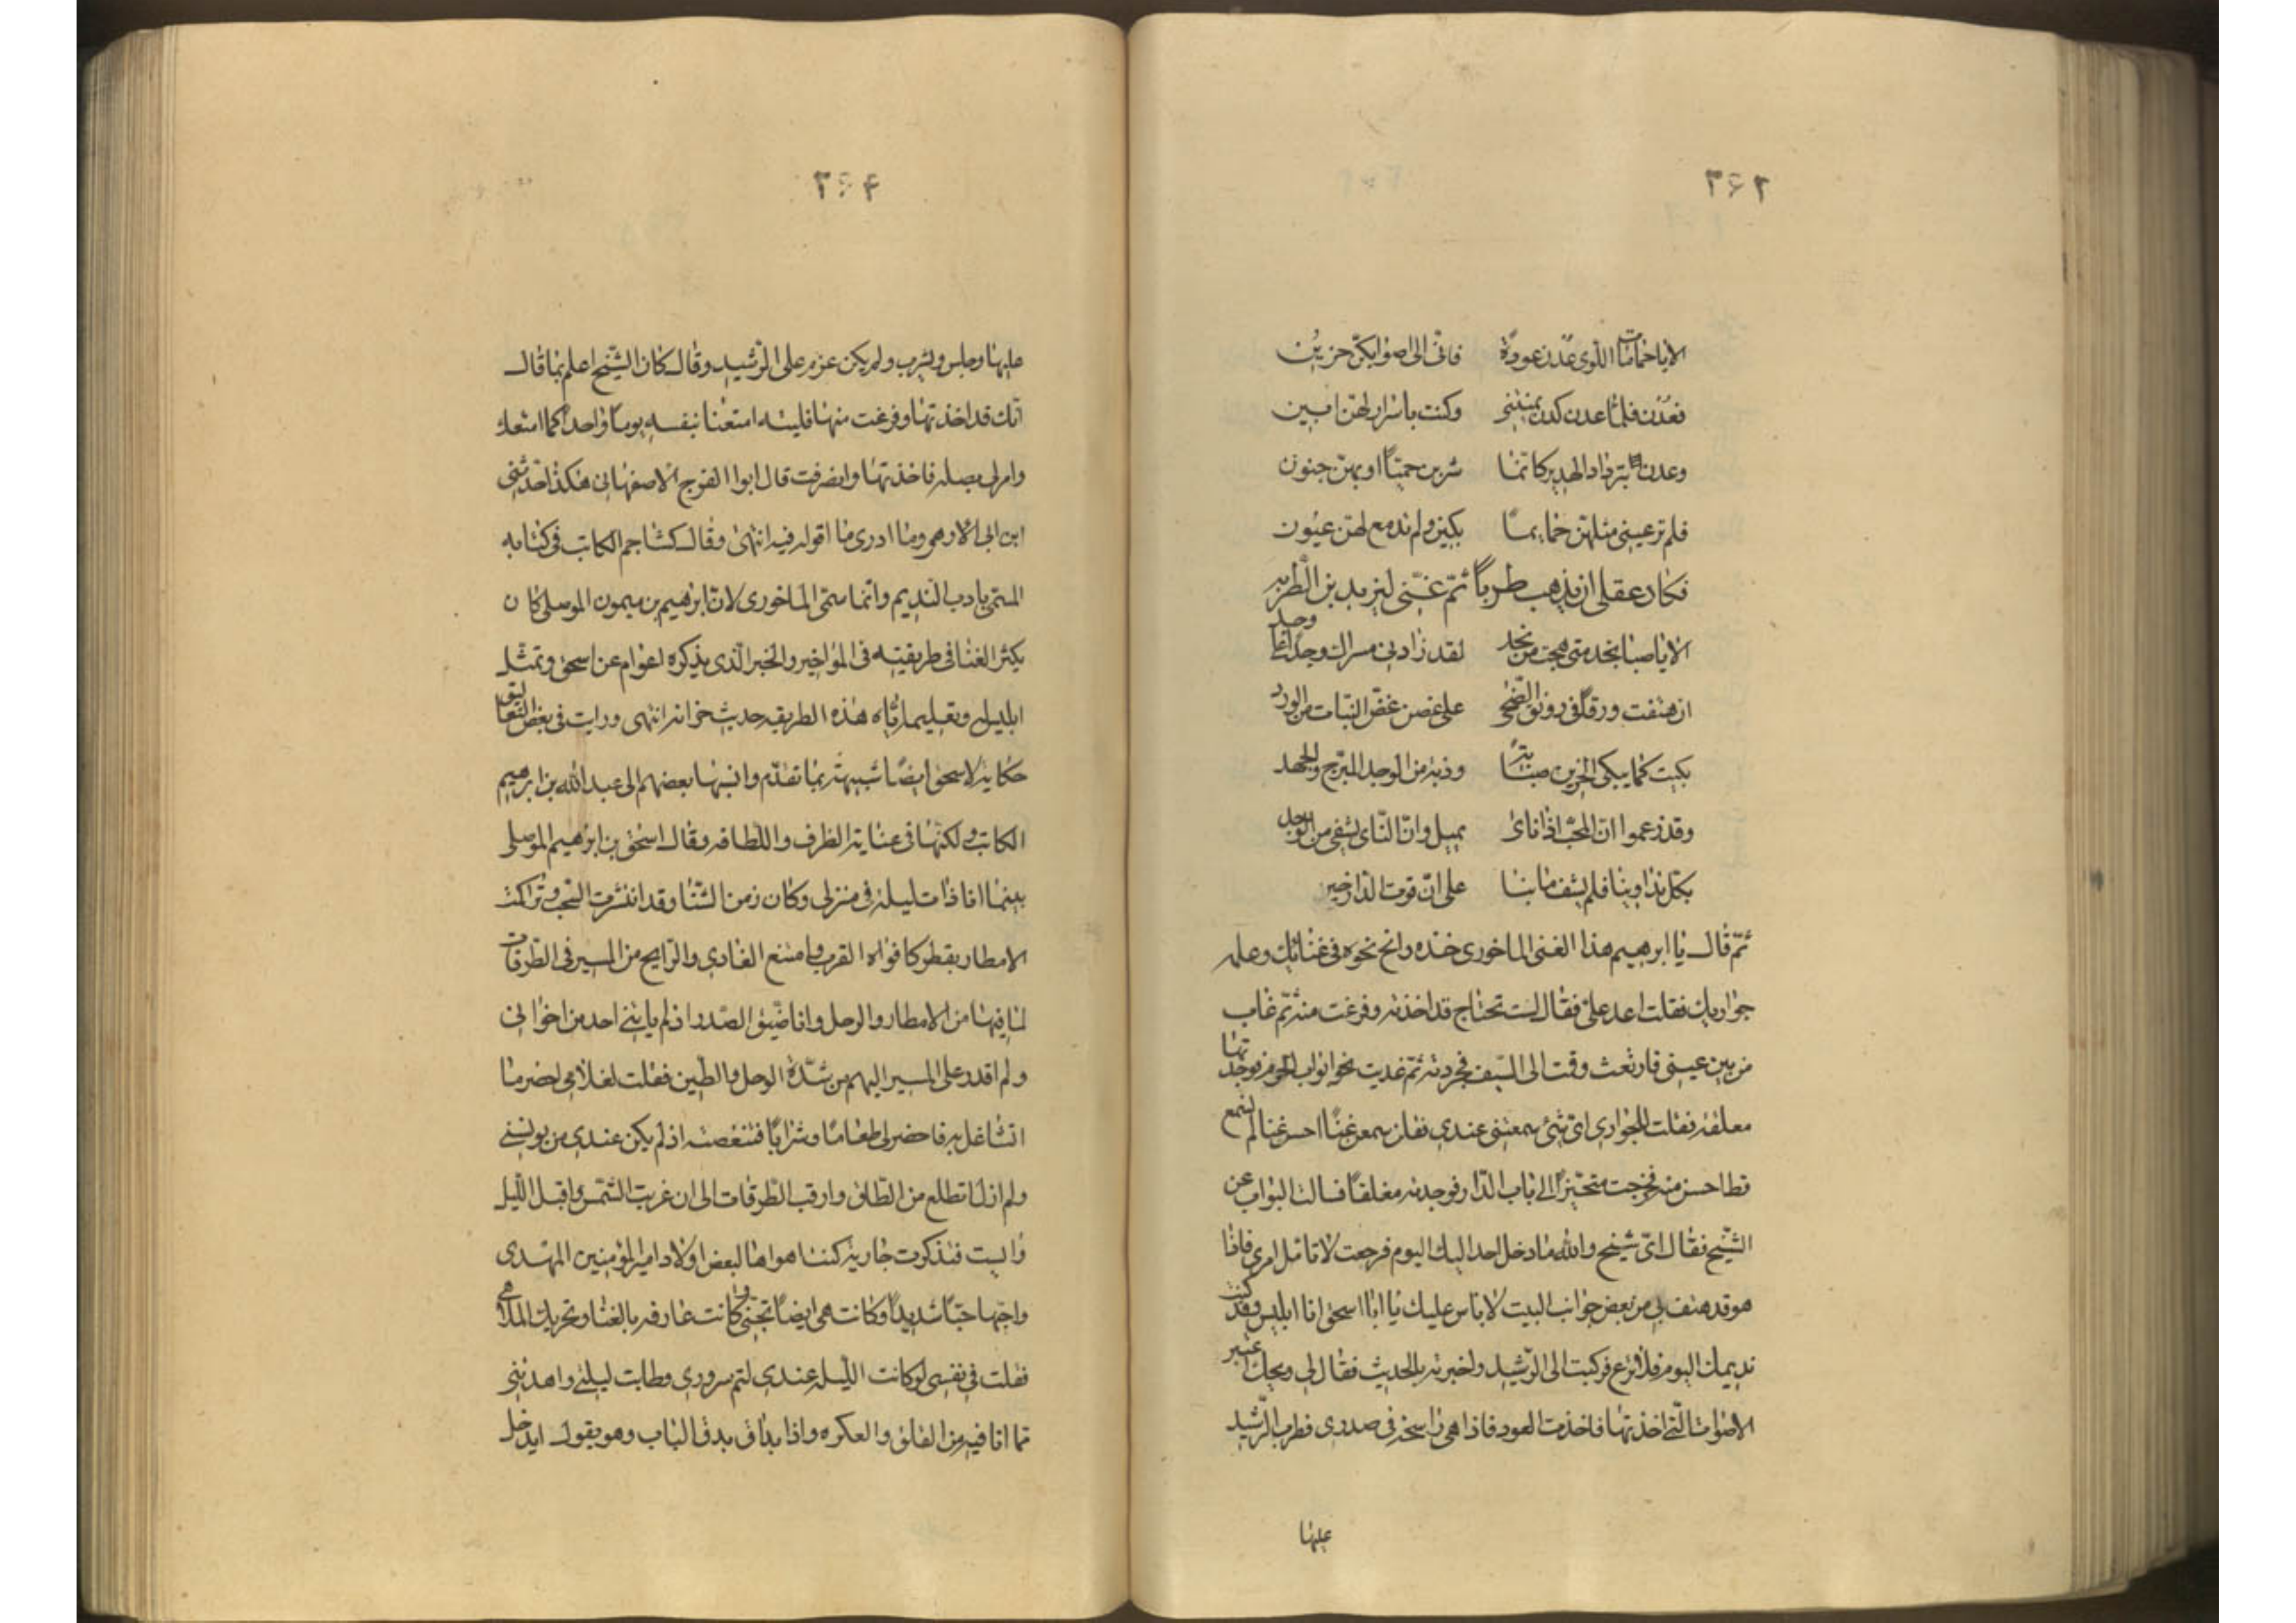 ٣٤٢
الا يا حمامات اللوى عدن عودة فانى الى اصواتكن حزين
فعدن فلما عدن كدن يمتننى وكنت باسرار لهن ابين
وعدن بترداد الهدير كانما شربن حميا او بهن جنون
فلم تر عينى مثلهن حمايما بكين ولم تدمع لهن عيون
فكاد عقلى ان يذهب طربا ثم غنى ليزيد بن الطثريه
الا يا صبا نجد متى هجت من نجد لقد زادنى مسراك وجدا على وجد
ان هتفت ورقا فى رونق الضحى على غصن غض النبات من الورد
بكيت كما يبكى الحزين صبابة وذبت من الوجد المبرح والجهد
وقد زعموا ان المحب اذا نأى يميل وان النأى يشفى من الوجد
بكل تداوينا فلم يشف ما بنا على ان قوت الدار خير
ثم قال يا ابرهيم هذا الغنى الماخورى خذه وانح نحوه فى غنائك وعلمه
جواريك فقلت اعد على فقال لست تحتاج قد اخذته وفرغت منه ثم غاب
من بين عينى فارتعت وقمت الى السيف فجردته ثم غديت نحو ابواب الحرم فوجدتها
معلقه فقلت للجوارى اى شئ سمعتنى عندى فقلن سمعن غنا احسن غنا لم نسمع
قط احسن منه فخرجت متحيرا الى باب الدار فوجدته مغلقا فسالت البواب عن
الشيخ فقال اى شيخ والله ما دخل احد اليك اليوم فرجعت لاتامل امرى فاذا
هو قد هتف بى من بعض جوانب البيت لا باس عليك يا ابا اسحق انا ابليس وقد كنت
نديمك اليوم فلا تزع فركبت الى الرشيد واخبرته بالحديث فقال لى ويحك اعتبر
الاصوات التى اخذتها فاخذت العود فاذا هى راسخه فى صدرى فطرب الرشيد
عليها
٣٤٤
عليها وجلس وشرب ولم يكن عزم على الرشيد وقال كان الشيخ اعلم بما قال
انك قد اخذتها وفرغت منها فليته امتعنا بنفسه يوما واحدا كما امتعك
وامر لى بصله فاخذتها وانصرفت قال ابوا الفرج الاصفهانى هكذا حدثنى
ابن ابى الازهر وما ادرى ما اقول فيه انتهى وقال كشاجم الكاتب فى كتابه
المسمى بادب النديم وانما سمى الماخورى لان ابرهيم بن ميمون الموصلى كان
يكثر الغنا فى طريقته فى المواخير والخبر الذى يذكره العوام عن اسحق وتمثل
ابليس له وتعليمه اياه هذه الطريقه حديث خرافه انتهى ورايت فى بعض التعاليق
حكاية لاسحق ايضا شبيهة بما تقدم وانسبها بعضهم الى عبد الله بن ابرهيم
الكاتب ولكنها فى عناية الظرف واللطافه وقال اسحق بن ابرهيم الموصلى
بينما انا ذات ليلة فى منزلى وكان زمن الشتا وقد انتشرت السحب وتراكمت
الامطار بقطر كافواه القرب وامتنع الغادى والرايح من المسير فى الطرقات
لما فيها من الامطار والوحل وانا ضيق الصدر اذ لم ياتنى احد من اخوانى
ولم اقدر على المسير اليهم من شدة الوحل والطين فقلت لغلامى احضر ما
اتشاغل به فاحضر لى طعاما وشرابا فتنغصته اذ لم يكن عندى من يونسنى
ولم ازل اتطلع من الطاق وارقب الطرقات الى ان غربت الشمس واقبل الليل
فتذكرت جارية كنت اهواها لبعض اولاد امير المؤمنين المهدى
واحبها حبا شديدا وكانت هى ايضا تحبنى وكانت عارفه بالغنا وتحريك الملاهى
فقلت فى نفسى لو كانت الليله عندى لتم سرورى وطابت ليلتى
مما انا فيه من القلق والفكره واذا بداق يدق الباب وهو يقول ايدخل